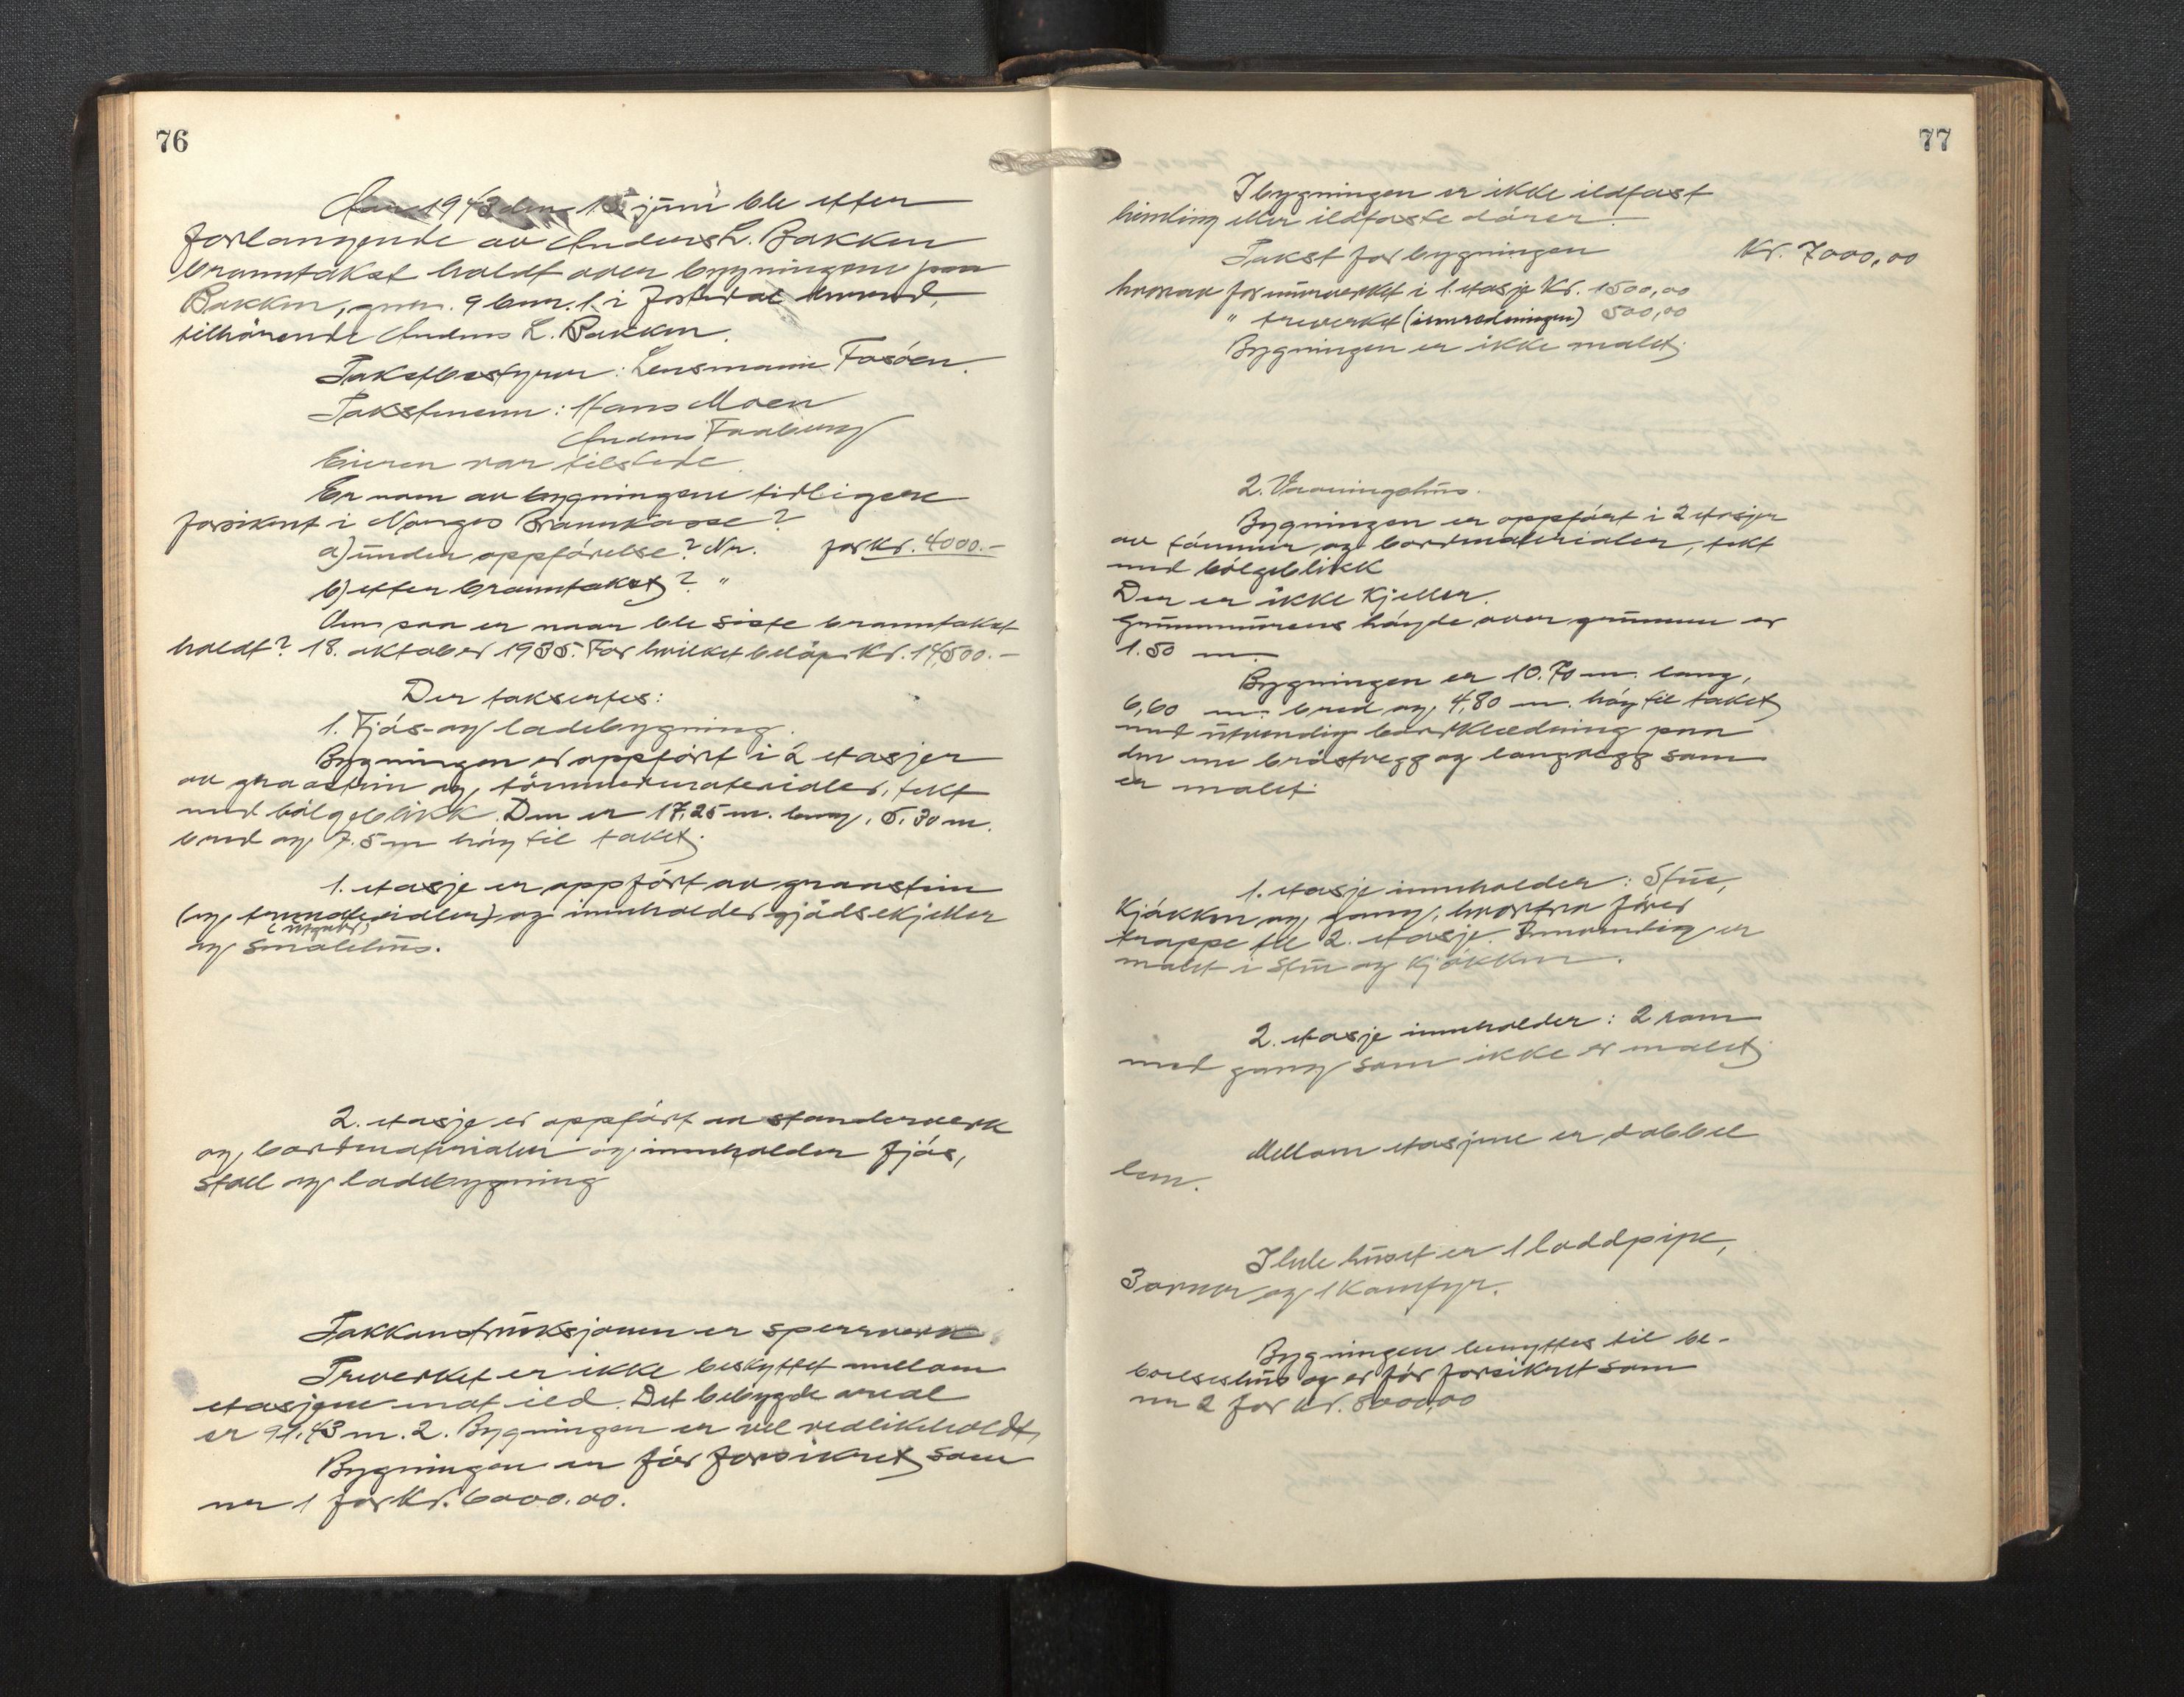 76
Aar 1943 den 15 juni ble etter
forlangende av Anders L. Bakken
branntakst holdt over bygningene paa
Bakken, gnr. 9 bnr. 1. i Jostedal herred,
tilhörende Anders L. Bakken.
Takstbestyrer: Lensmann Fasöen.
Takstmenn: Hans Moen
Anders Faaberg
Eieren var tilstede.
Er noen av bygningene tidligere
forsikret i Norges Brannkasse?
a) under oppförelse? Nr. for Kr. 4000.-
b) etter branntakst? "
Om saa er naar ble siste branntakst
holdt? 18. oktober 1935. For hvilket belöp. Kr. 14500.-
Der taksertes:
1. Fjös- og ladebygning.
Bygningen er oppfört i 2 etasjer
av graastein og tömmermaterialer, tekt
med bölgeblikk. Den er 17,25 m. lang, 5,30 m.
bred og 7.5 m höy til taket.
1. etasje er oppfört av graastein
(og trematerialer) og inneholder gjödselkjeller
(utgaar)
og smalehus.
2. etasje er oppfört av standerverk
og bordmaterialer og inneholder fjös,
stall og ladebygning
Takkonstruksjonen er sperreverk.
Treverket er ikke beskyttet mellom
etasjene mot ild. Det bebygde areal
er 91,43 m. 2. Bygningen er vel vedlikeholdt,
Bygningen er för forsikret som
nr 1 for Kr. 6000.00.
77
I bygningen er ikke ildfast
himling eller ildfaste dörer.
Takst for bygningen Kr. 7000,00
hvorav for murverket i 1. etasje Kr. 1500,00
" treverket (innredningen) 500,00
Bygningen er ikke malet.
2. Vaaningshus.
Bygningen er oppfört i 2 etasjer
av tömmer og bordmaterialer, tekt
med bölgeblikk
Der er ikke Kjeller.
Grunnmurens höyde over grunnen er
1.50 m.
Bygningen er 10.70 m. lang,
6,60 m. bred og 4,80 m. höy til taket
med utvendig bordklædning paa
den ene bröstvegg og langvegg som
er malet.
1. etasje inneholder: Stue,
Kjökken og gang, hvorfra förer
trappe til 2. etasje. Innvendig er
malet i stue og Kjökken.
2. etasje inneholder: 2 rom
med gang som ikke er malet.
Mellom etasjene er dobbel
lem.
I hele huset er 1 loddpipe,
3 ovner og 1 Komfyr.
Bygningen benyttes til be-
boelseshus og er för forsikret som
nr 2 for Kr. 8000,00